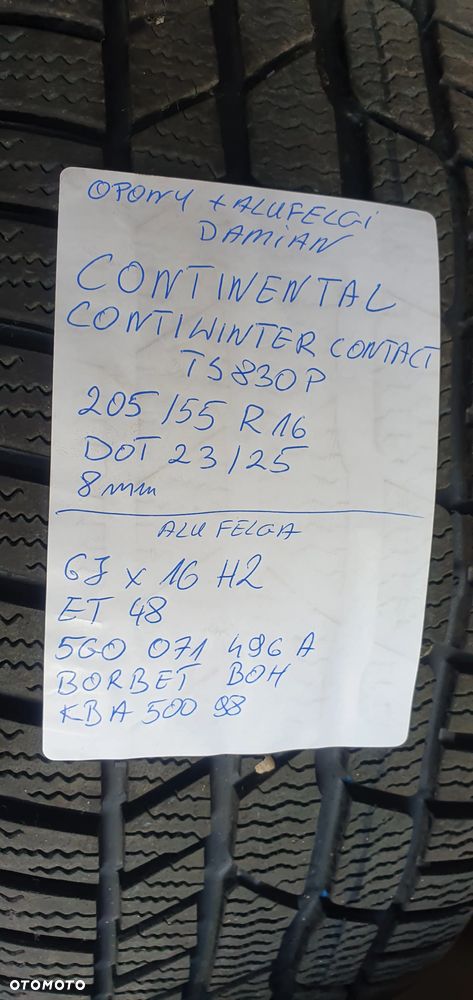 OPONY + ALUFELGI
DAMIAN
CONTINENTAL
CONTIWINTER CONTACT
TS830P
205/55 R16
DOT 23/25
8mm
ALU FELGA
6J x 16 H2
ET 48
5G0 071 496 A
BORBET BOH
KBA 500 98
OTOMOTO